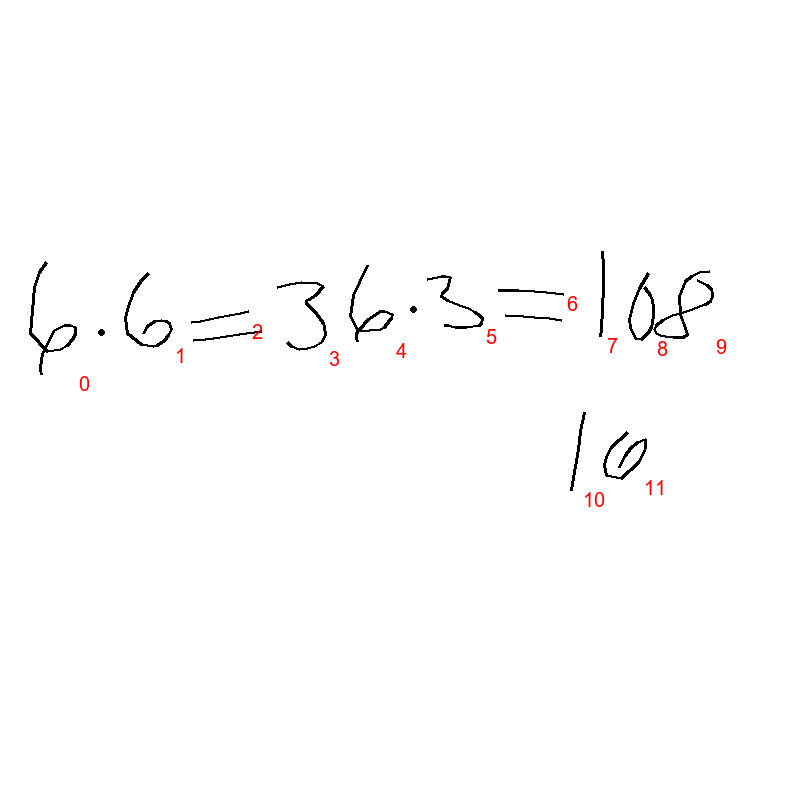 6·6=36·3=108
0 1 2 3 4 5 6 7 8 9
16
10 11